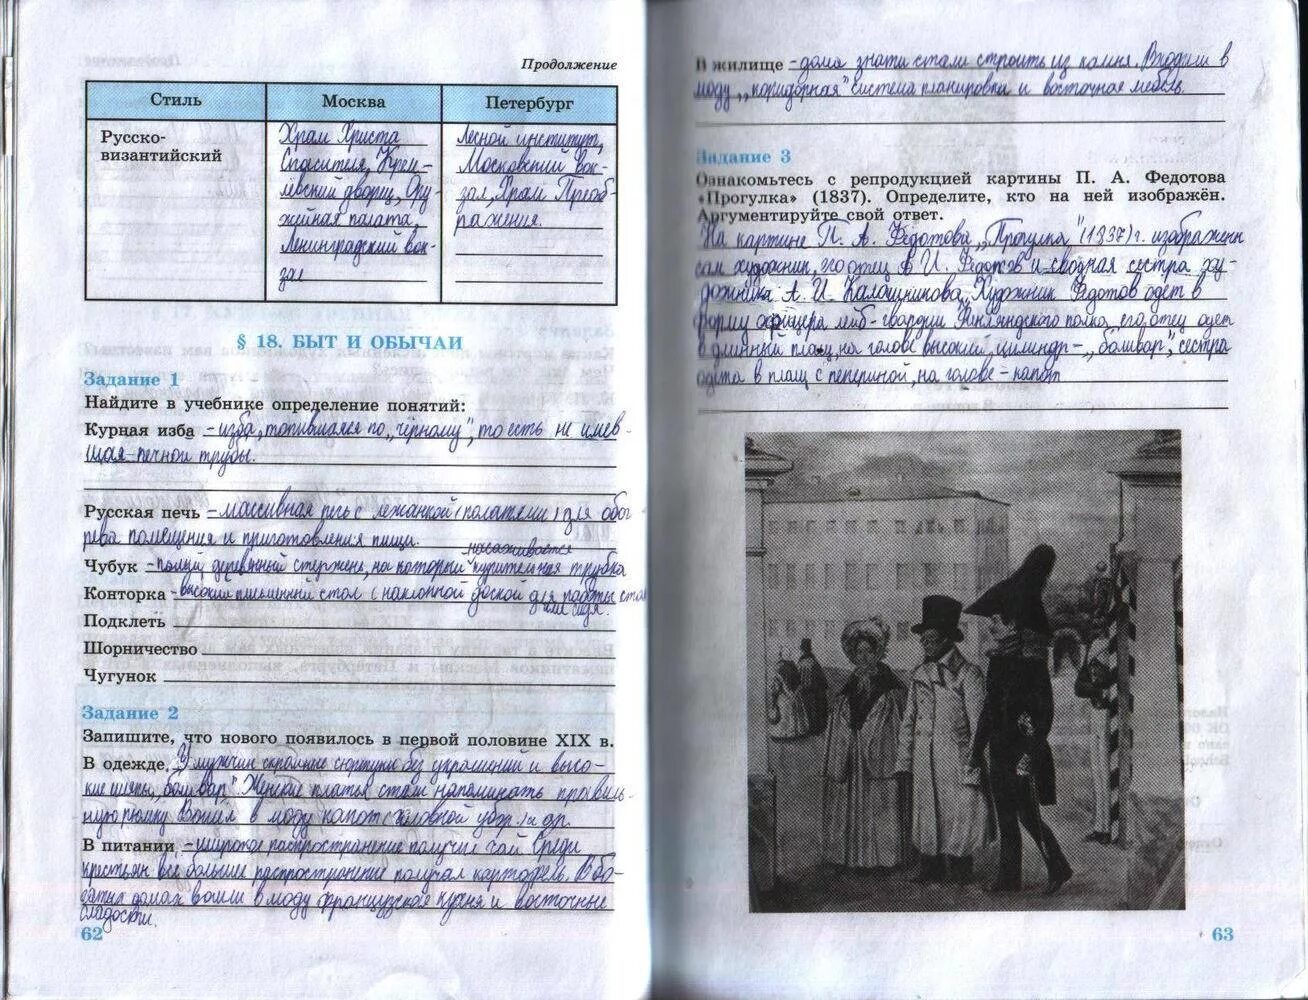 Продолжение
Стиль Москва Петербург
Русско-
византийский
Храм Христа
Спасителя, Крем-
лёвский дворец, Ору-
жейная палата,
Ленинградский вок-
зал
Лесной институт,
Московский вок-
зал, Храм Преоб-
ражения.
§ 18. БЫТ И ОБЫЧАИ
Задание 1
Найдите в учебнике определение понятий:
Курная изба - изба, топившаяся по „чёрному", то есть не имев-
щая печной трубы.
Русская печь - массивная печь с лежанкой (полатями) для обог
рева помещения и приготовления пищи.
насаживается
Чубук - полый деревянный стержень, на который курительная трубка
Конторка - высокий письменный стол с наклонной доской для работы стоя
или сидя.
Подклеть
Шорничество
Чугунок
Задание 2
Запишите, что нового появилось в первой половине XIX в.
В одежде У мужчин скромные сюртуки без украшений и высо-
кие шляпы „боливар". Женские платья стали напоминать правиль-
ную рюмку. Вошел в моду капот (головной убор) и др.
В питании - широкое распространение получил чай. Среди
крестьян всё большее распространение получал картофель. В бо-
гатых домах вошли в моду французская кухня и восточные
сладости.
62
В жилище - дома знати стали строить из камня. Входили в
моду „коридорная" система планировки и восточная мебель.
Задание 3
Ознакомьтесь с репродукцией картины П. А. Федотова
«Прогулка» (1837). Определите, кто на ней изображён.
Аргументируйте свой ответ.
На картине П. А. Федотова „Прогулка" (1837) г. изображены
сам художник, его отец А. И. Федотов и сводная сестра ху-
дожника А. И. Калашникова. Художник Федотов одет в
форму офицера лейб-гвардии Финляндского полка, его отец одет
в длинный плащ, на голове высокий цилиндр - „боливар", сестра
одета в плащ с пелериной, на голове - капот
63